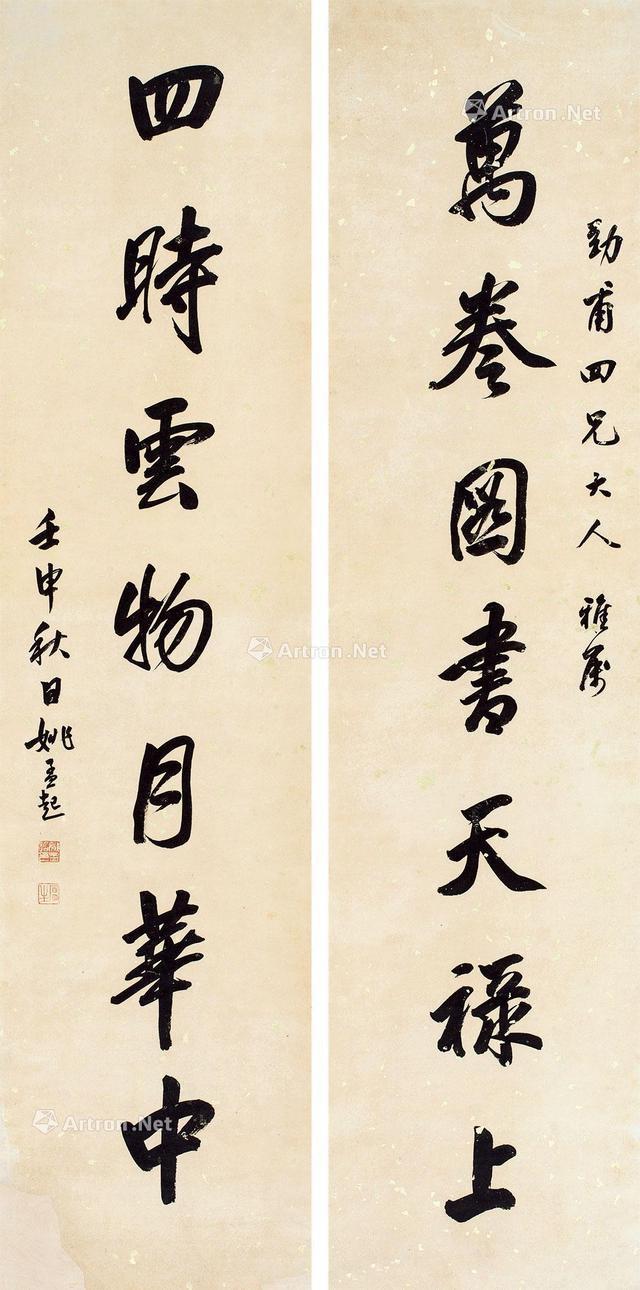 勁甫四兄大人 雅屬
萬卷圖書天祿上
四時雲物月華中
壬申秋日姚孟起
Artron.Net
Artron.Net
Artron.Net